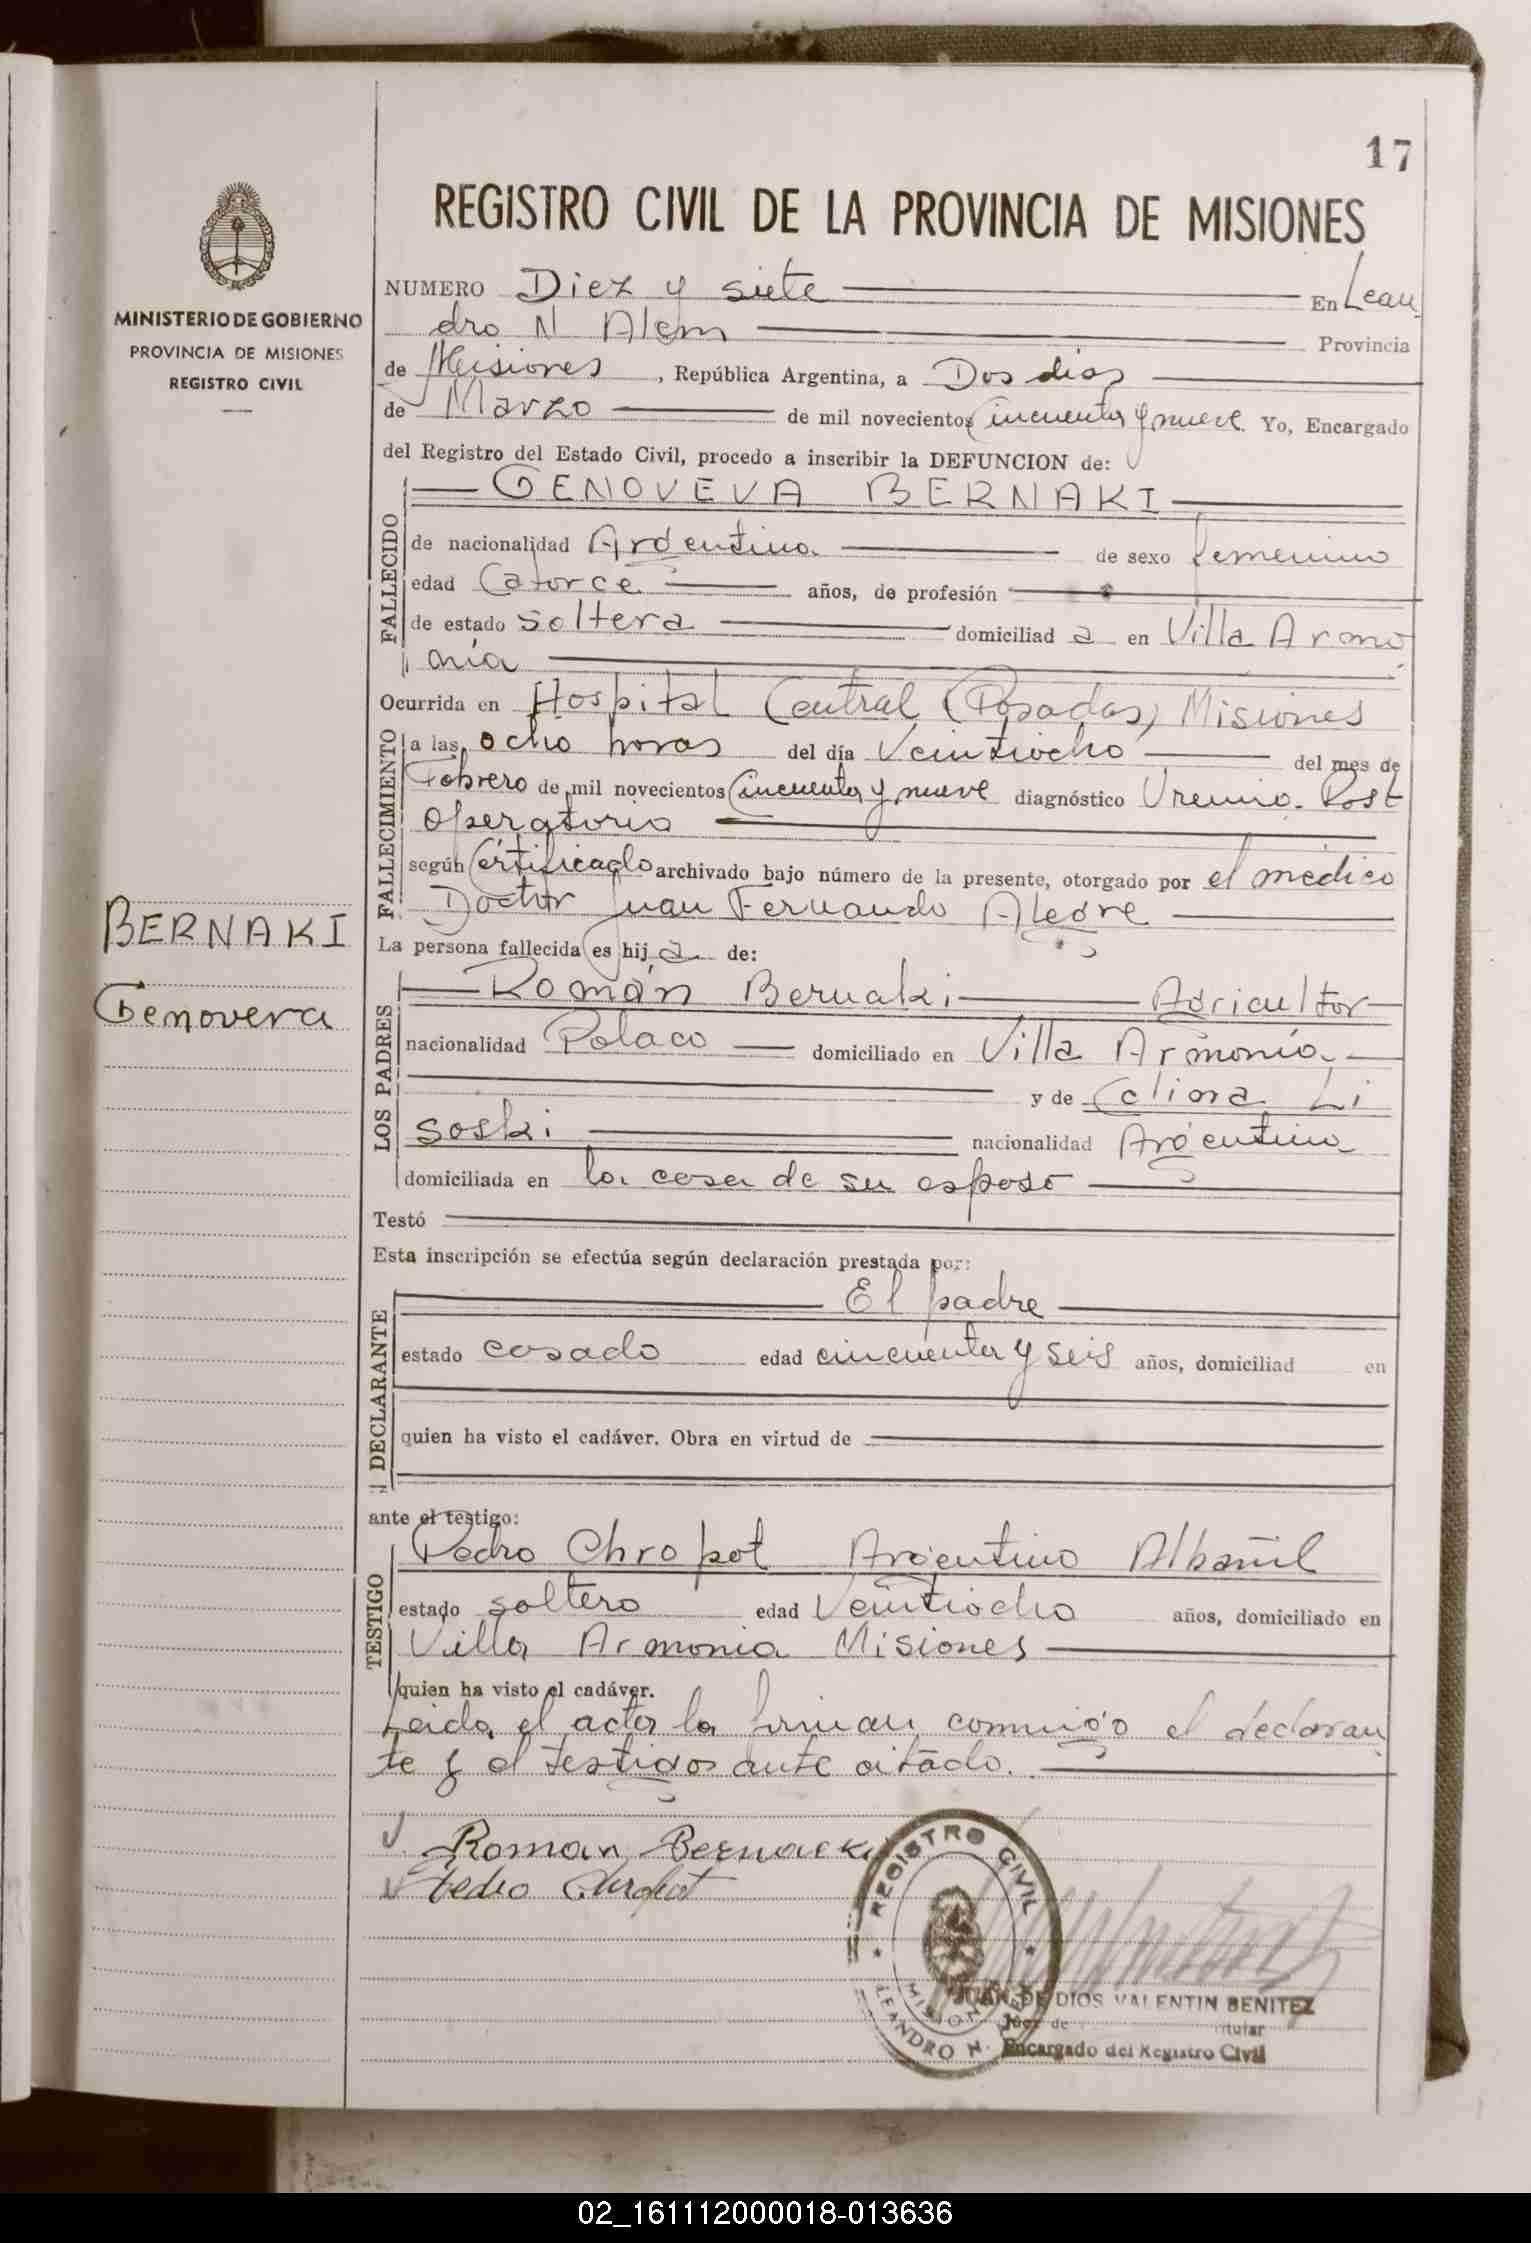 17
REGISTRO CIVIL DE LA PROVINCIA DE MISIONES
MINISTERIO DE GOBIERNO
PROVINCIA DE MISIONES
REGISTRO CIVIL
NUMERO Diez y siete En Lean
dro N Alem Provincia
de Misiones, República Argentina, a Dos dias
de Marzo de mil novecientos cincuenta y nueve. Yo, Encargado
del Registro del Estado Civil, procedo a inscribir la DEFUNCION de:
FALLECIDO
GENOVEVA BERNAKI
de nacionalidad Argentina de sexo femenino
edad Catorce años, de profesión
de estado soltera domiciliad a en Villa Armo
nia
Ocurrida en Hospital Central (Posadas) Misiones
FALLECIMIENTO
a las ocho horas del día Veintiocho del mes de
Febrero de mil novecientos cincuenta y nueve diagnóstico Uremia. Post
Operatorio
según Certificado archivado bajo número de la presente, otorgado por el médico
Doctor Juan Fernando Alegre
BERNAKI
Genoveva
La persona fallecida es hij a de:
LOS PADRES
Román Bernaki Agricultor
nacionalidad Polaco domiciliado en Villa Armonia
y de Celina Li
soski nacionalidad Argentina
domiciliada en la casa de su esposo
Testó
Esta inscripción se efectúa según declaración prestada por:
DECLARANTE
El padre
estado casado edad cincuenta y seis años, domiciliad en
quien ha visto el cadáver. Obra en virtud de
ante el testigo:
TESTIGO
Pedro Chropot Argentino Albañil
estado soltero edad Veintiocho años, domiciliado en
Villa Armonia Misiones
quien ha visto el cadáver.
Leida el acta la firman conmigo el declaran
te y el testigo ante citado.
Roman Bernacki
Pedro Chropot
REGISTRO CIVIL
MISIONES
LEANDRO N.
JUAN DE DIOS VALENTIN BENITEZ
Juez de
Encargado del Registro Civil
02_161112000018-013636